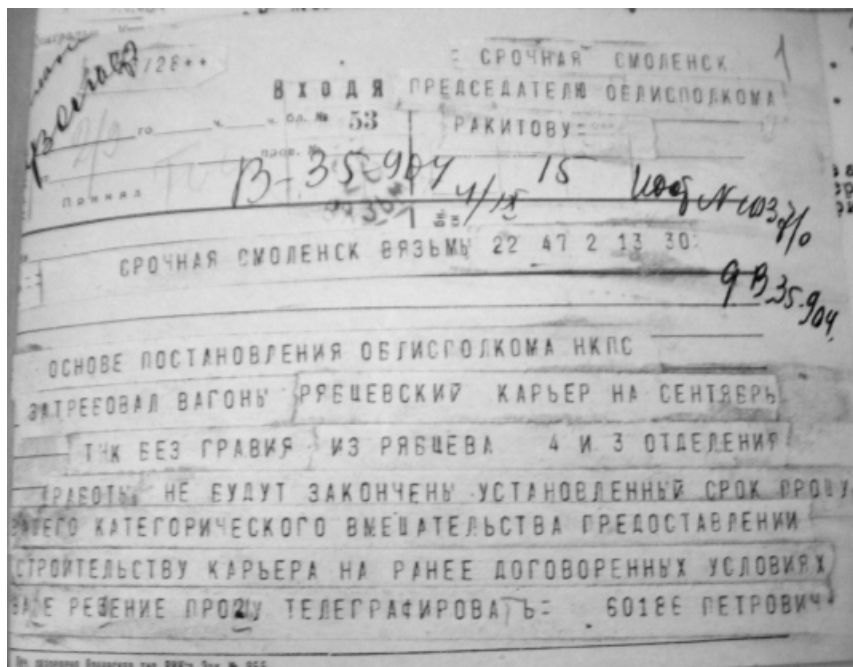 728**
= СРОЧНАЯ СМОЛЕНСК
1
ВХОДЯ ПРЕДСЕДАТЕЛЮ ОБЛИСПОЛКОМА
го ч. № 53
РАКИТОВУ=
2/9
принял
В-35-904 4/IX 15
СРОЧНАЯ СМОЛЕНСК ВЯЗЬМЫ 22 47 2 13 30=
9 В 35-904
ОСНОВЕ ПОСТАНОВЛЕНИЯ ОБЛИСПОЛКОМА НКПС
ЗАТРЕБОВАЛ ВАГОНЫ РЯБЦЕВСКИЙ КАРЬЕР НА СЕНТЯБРЬ
ТЧК БЕЗ ГРАВИЯ ИЗ РЯБЦЕВА 4 И 3 ОТДЕЛЕНИЯ
РАБОТЫ НЕ БУДУТ ЗАКОНЧЕНЫ УСТАНОВЛЕННЫЙ СРОК ПРОШУ
ВАШЕГО КАТЕГОРИЧЕСКОГО ВМЕШАТЕЛЬСТВА ПРЕДОСТАВЛЕНИИ
СТРОИТЕЛЬСТВУ КАРЬЕРА НА РАНЕЕ ДОГОВОРЕННЫХ УСЛОВИЯХ
ВАШЕ РЕЗЕНИЕ ПРОШУ ТЕЛЕГРАФИРОВАТЬ= 60186 ПЕТРОВИЧ*